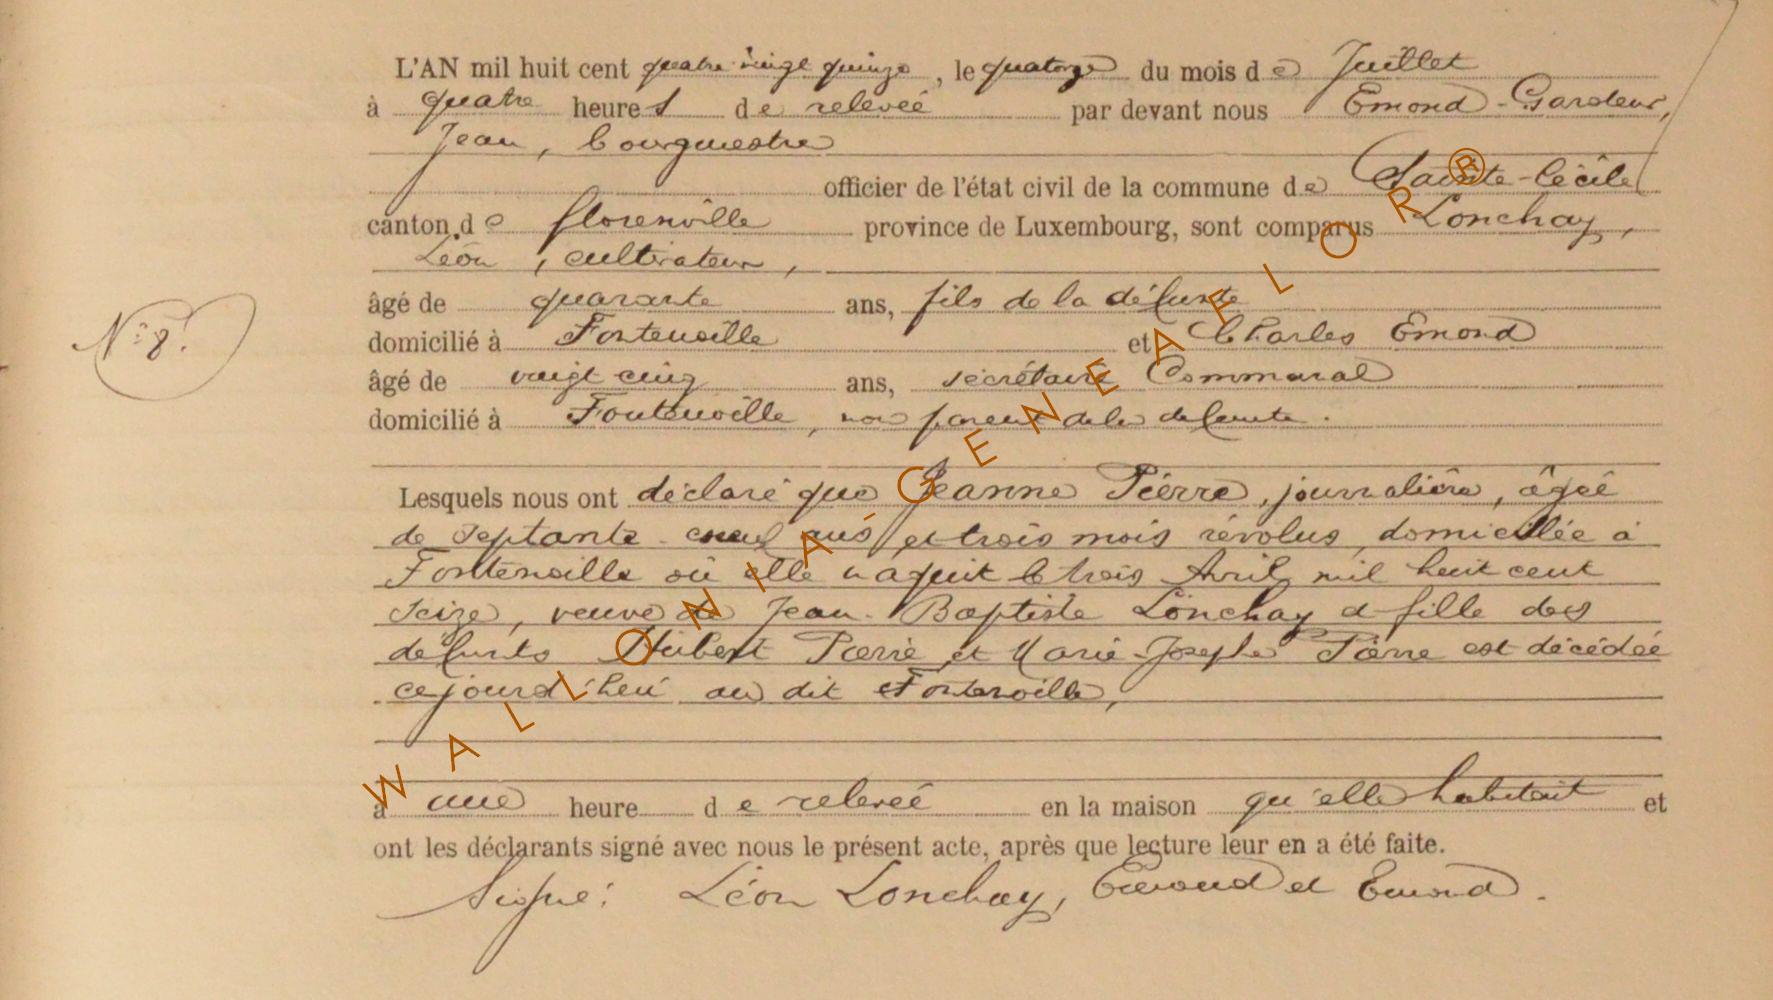 L'AN mil huit cent quatre vingt quinze, le quatorze du mois de Juillet
à quatre heures de relevée par devant nous Emond-Gardeur,
Jean, bourgmestre
officier de l'état civil de la commune de Sainte-Cécile
canton de florenville province de Luxembourg, sont comparus Lonchay,
Léon, cultivateur,
âgé de quarante ans, fils de la défunte
N° 8.
domicilié à Fontenoille et Charles Emond
âgé de vingt cinq ans, secrétaire Communal
domicilié à Fontenoille, non parent de la défunte.
Lesquels nous ont déclaré que Jeanne Pierre, journalière, âgée
de septante-neuf ans et trois mois révolus, domiciliée à
Fontenoille où elle naquit le trois Avril mil huit cent
seize, veuve de Jean-Baptiste Lonchay et fille des
défunts Hubert Pierre et Marie-Joseph Pierre est décédée
cejourd'hui au dit Fontenoille,
à une heure de relevée en la maison qu'elle habitait et
ont les déclarants signé avec nous le présent acte, après que lecture leur en a été faite.
Signé: Léon Lonchay, Emond et Emond.
WALLONIA-GENEAFLOR®